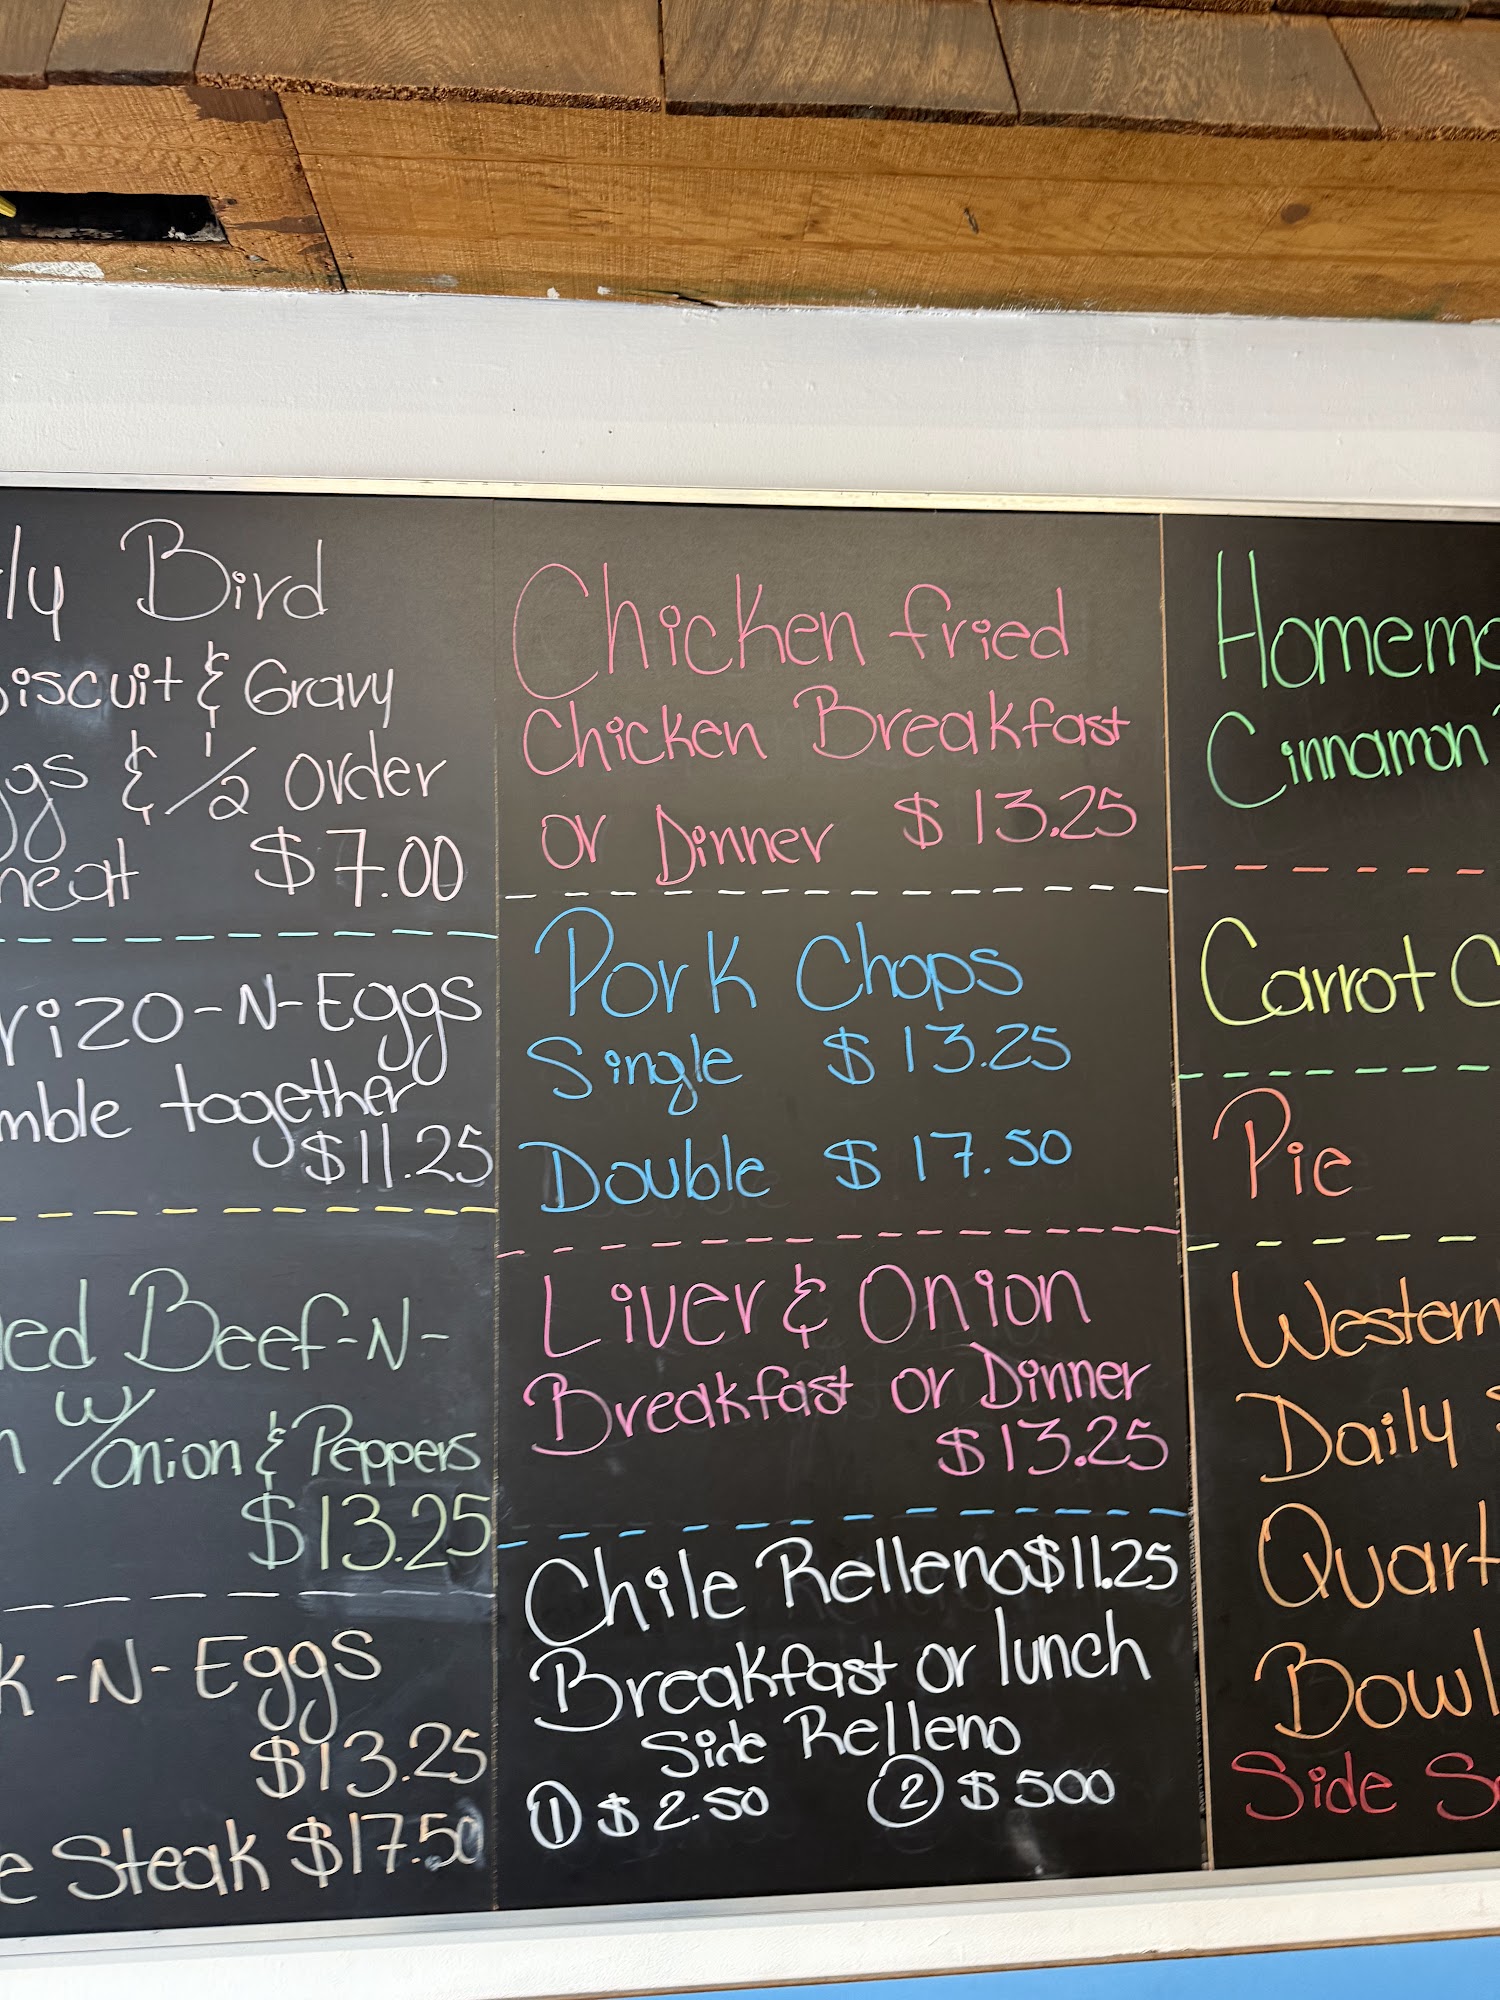 ly Bird
iscuit & Gravy
gs & 1/2 order
meat $7.00
rizo-N-Eggs
mble together
$11.25
ed Beef-N-
w/onion & Peppers
$13.25
k-N-Eggs
$13.25
e Steak $17.50
Chicken fried
Chicken Breakfast
or Dinner $13.25
Pork Chops
Single $13.25
Double $17.50
Liver & Onion
Breakfast or Dinner
$13.25
Chile Relleno $11.25
Breakfast or lunch
Side Relleno
① $2.50 ② $500
Homem
Cinnamon
Carrot C
Pie
Western
Daily
Quart
Bowl
Side S